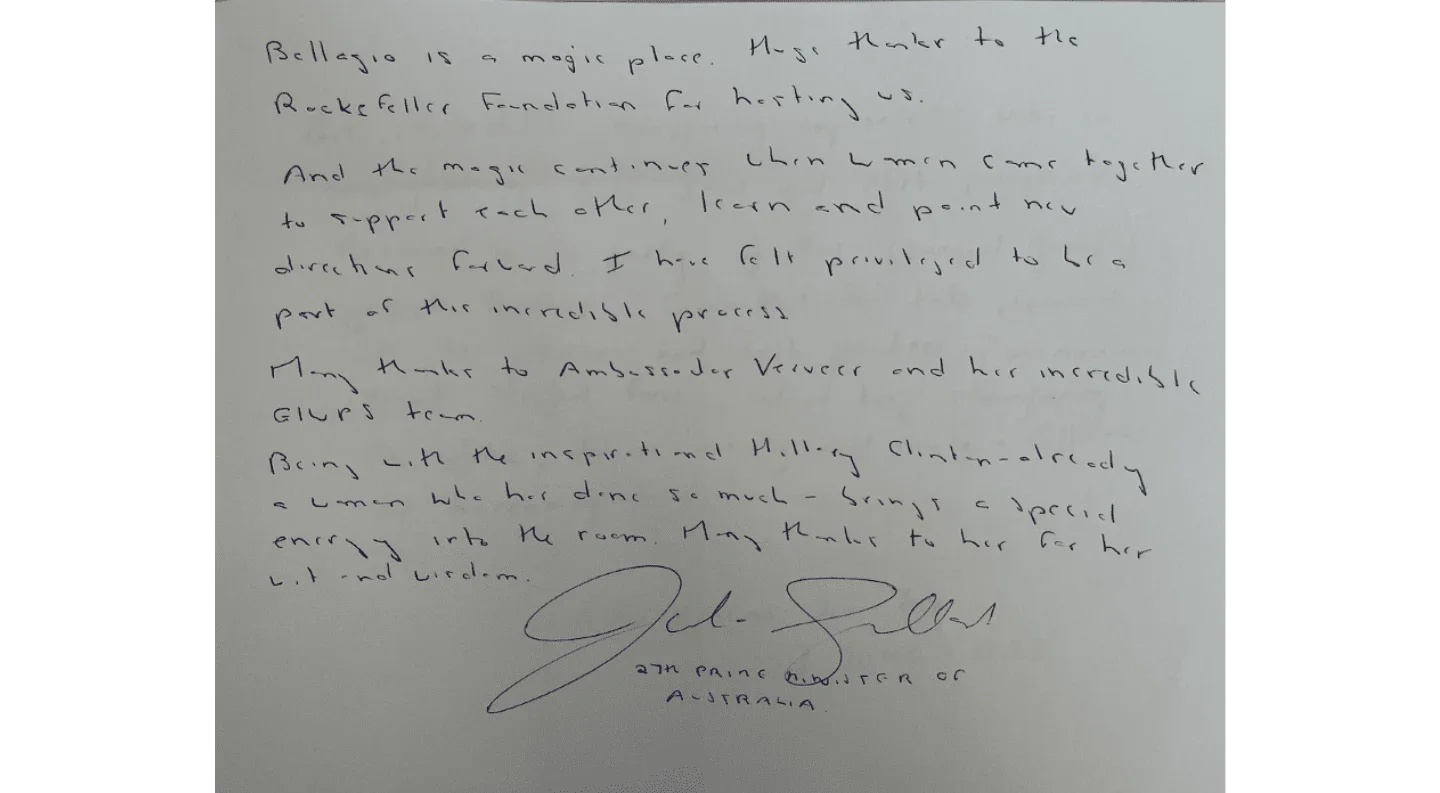 Bellagio is a magic place. Huge thanks to the
Rockefeller Foundation for hosting us.
And the magic continues when women come together
to support each other, learn and point new
directions forward. I have felt privileged to be a
part of this incredible process
Many thanks to Ambassador Verveer and her incredible
GIWPS team.
Being with the inspirational Hillary Clinton - already
a woman who has done so much - brings a special
energy into the room. Many thanks to her for her
wit and wisdom.
Julia Gillard
27th PRIME MINISTER OF
AUSTRALIA.